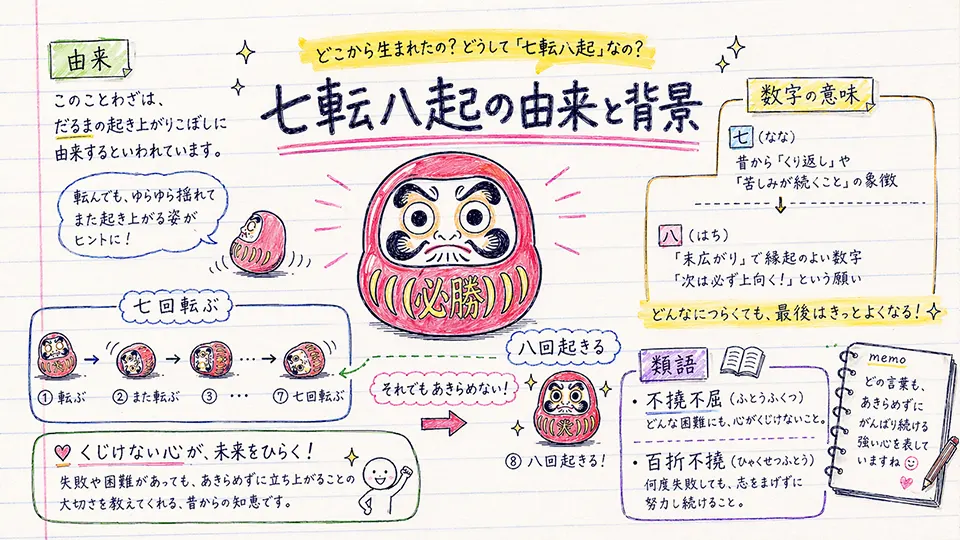 どこから生まれたの？どうして「七転八起」なの？
七転八起の由来と背景
由来
このことわざは、
だるまの起き上がりこぼしに
由来するといわれています。
転んでも、ゆらゆら揺れて
また起き上がる姿が
ヒントに！
必勝
数字の意味
七（なな）
昔から「くり返し」や
「苦しみが続くこと」の象徴
八（はち）
「末広がり」で縁起のよい数字
「次は必ず上向く！」という願い
どんなにつらくても、最後はきっとよくなる！
七回転ぶ
① 転ぶ
② また転ぶ
③ …
…
⑦ 七回転ぶ
八回起きる
それでもあきらめない！
⑧ 八回起きる！
くじけない心が、未来をひらく！
失敗や困難があっても、あきらめずに立ち上がることの
大切さを教えてくれる、昔からの知恵です。
類語
・不撓不屈（ふとうふくつ）
どんな困難にも、心がくじけないこと。
・百折不撓（ひゃくせつふとう）
何度失敗しても、志をまげずに
努力し続けること。
memo
どの言葉も、
あきらめずに
がんばり続ける
強い心を表して
いますね